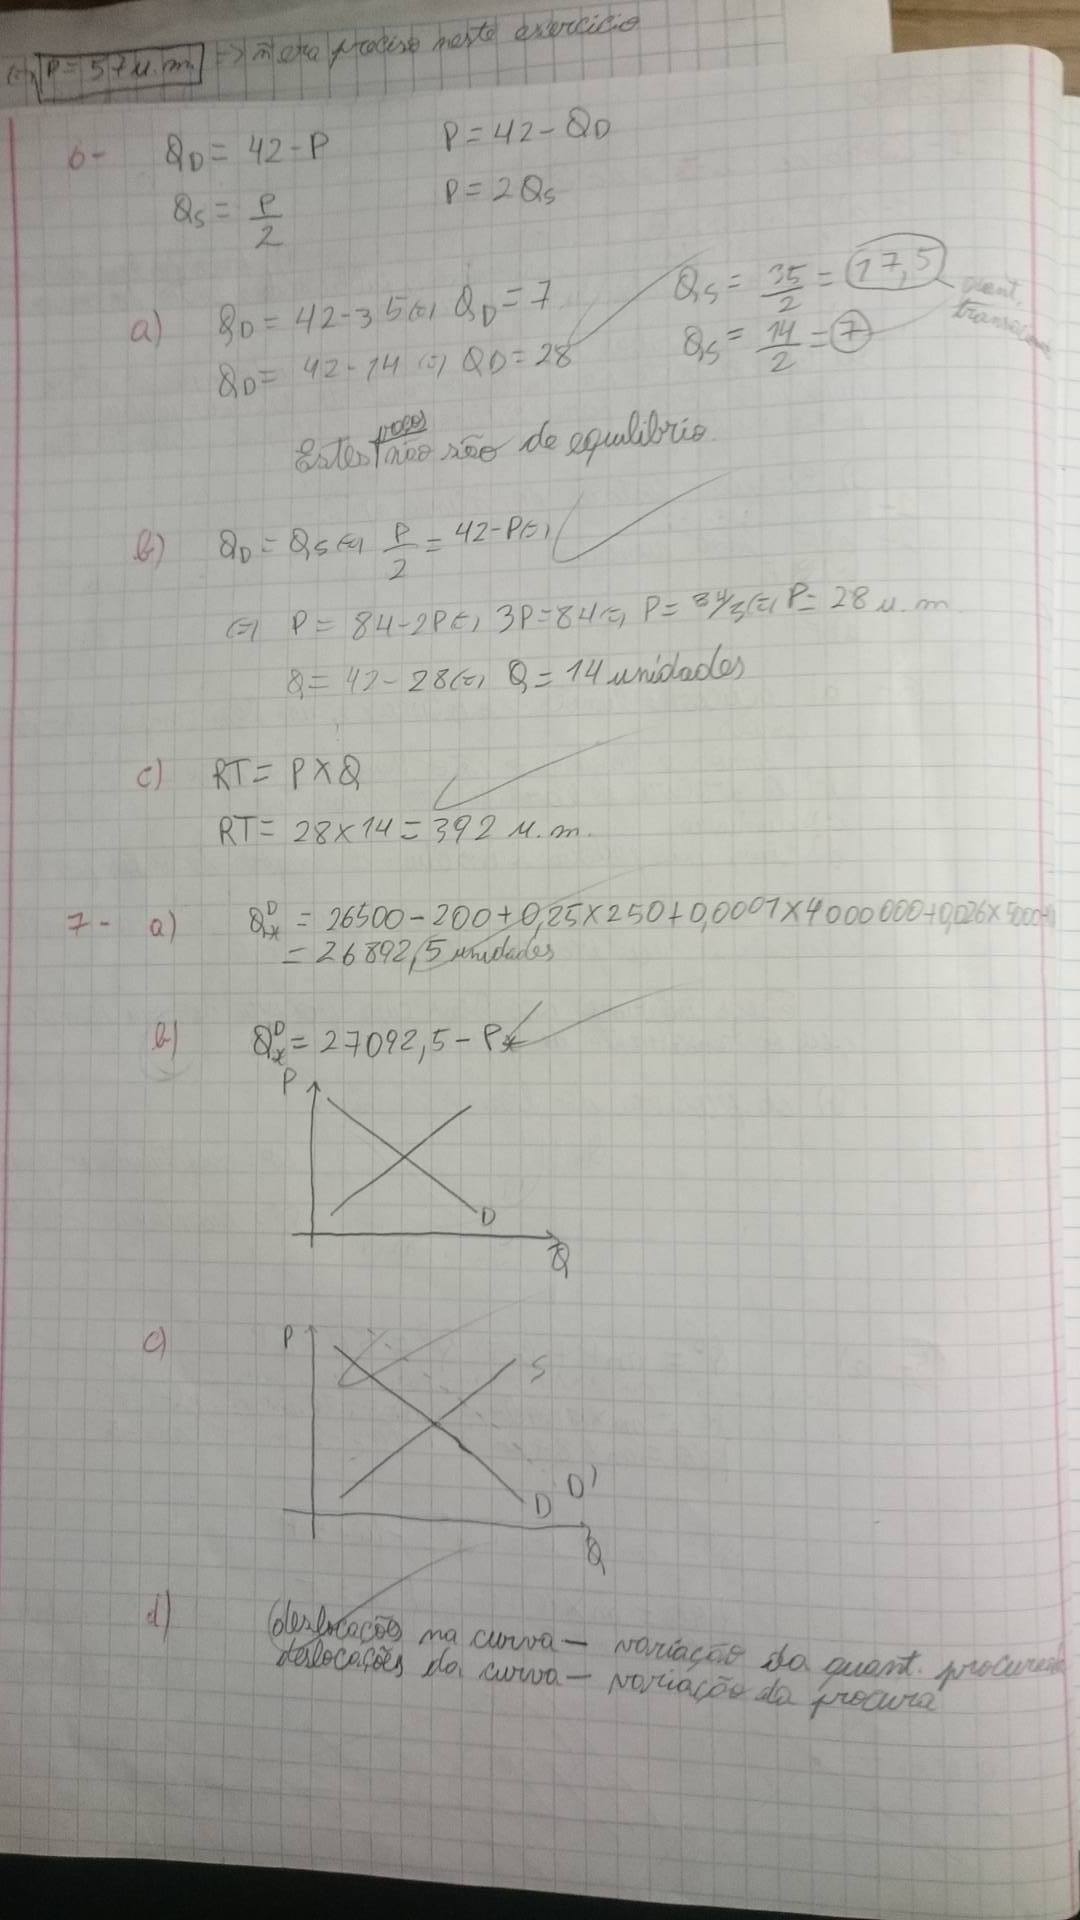 (=) P = 57 u.m. -> ñ era preciso neste exercício
6- QD = 42 - P P = 42 - QD
QS = P/2 P = 2QS
a) QD = 42 - 35 (=) QD = 7 QS = 35/2 = 17,5 quant.
QD = 42 - 14 (=) QD = 28 QS = 14/2 = 7
preços
Estes não são de equilíbrio.
b) QD = QS (=) P/2 = 42 - P (=)
(=) P = 84 - 2P (=) 3P = 84 (=) P = 84/3 (=) P = 28 u.m
Q = 42 - 28 (=) Q = 14 unidades
c) RT = P X Q
RT = 28 x 14 = 392 u.m.
7- a) QDx = 26500 - 200 + 0,25 x 250 + 0,0001 x 4000000 + 0,026 x 5000
= 26892,5 unidades
b) QDx = 27092,5 - Px
P
D
Q
c) P
S
D D'
Q
d) deslocações na curva - variação da quant. procurada
deslocações da curva - variação da procura